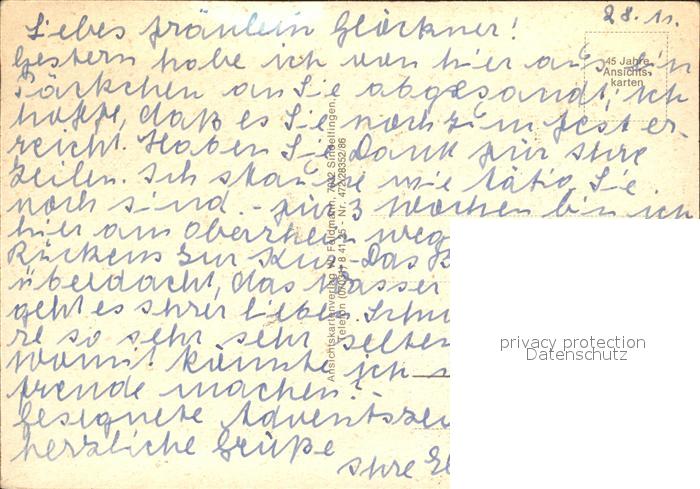 28.11.
Liebes Fräulein Glöckner!
Gestern habe ich von hier aus ein
Päckchen an Sie abgesandt; ich
hoffe, daß es Sie noch zum Fest er-
reicht. Haben Sie Dank für Ihre
Zeilen. Ich staune wie tätig Sie
noch sind. - Für 3 Wochen bin ich
hier am Oberrhein weg
Rückens zur Kur. Das B
überdacht, das Wasser
geht es Ihrer lieben Schw
re so sehr, sehr selten
Womit könnte ich
Freude machen? -
Gesegnete Adventszei
herzliche Grüße
Ihre El
45 Jahre
Ansichts-
karten
Ansichtskartenverlag W. Feldmann, 7032 Sindelfingen,
Telefon (07031) 8 41 35 - Nr. 472/28352/86
privacy protection
Datenschutz